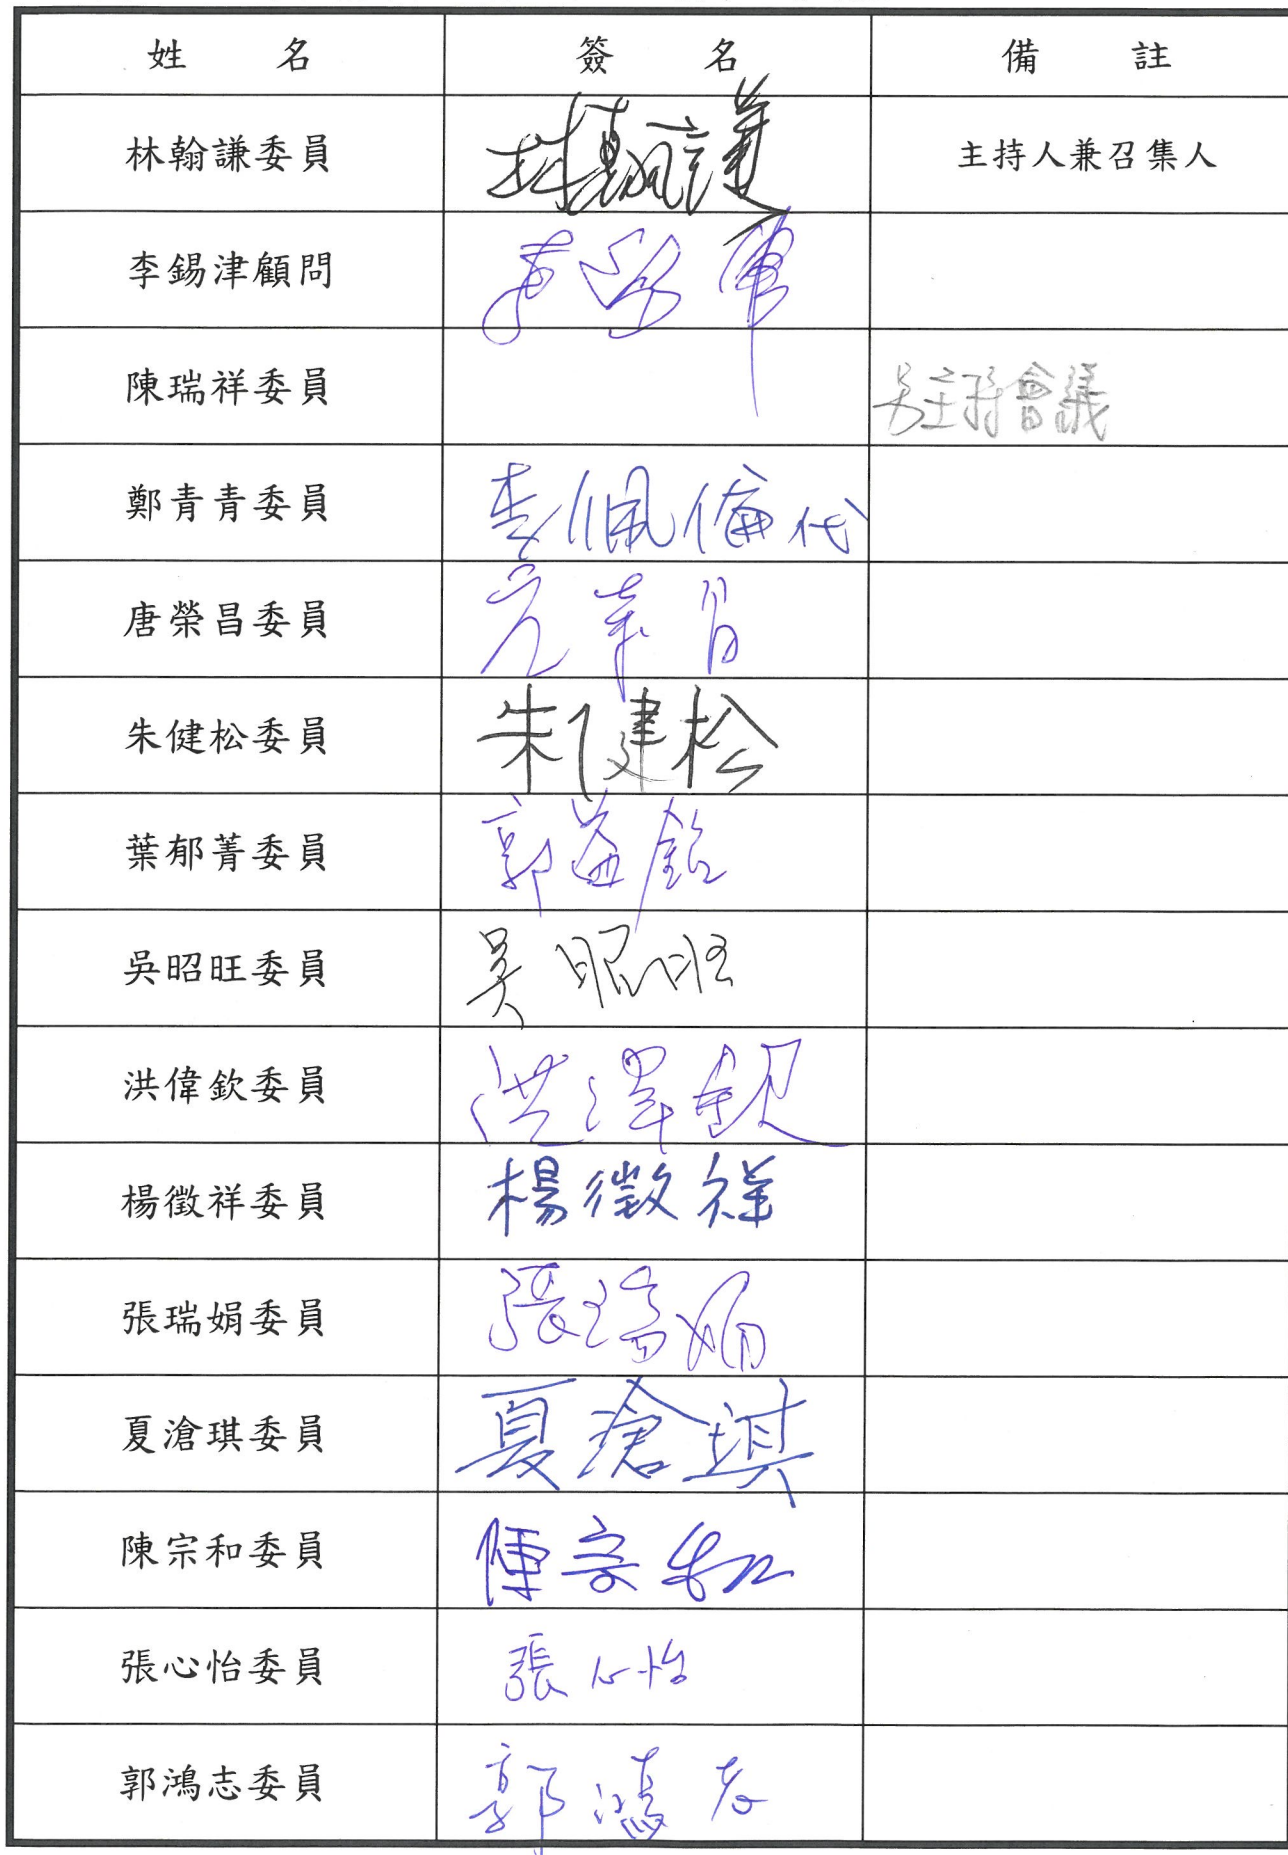 姓名 簽名 備註
林翰謙委員 林翰謙 主持人兼召集人
李錫津顧問 李錫津
陳瑞祥委員 另主持會議
鄭青青委員 代
唐榮昌委員
朱健松委員 朱健松
葉郁菁委員 郭益銘
吳昭旺委員 吳昭旺
洪偉欽委員
楊徵祥委員 楊徵祥
張瑞娟委員 張瑞娟
夏滄琪委員 夏滄琪
陳宗和委員 陳宗和
張心怡委員 張心怡
郭鴻志委員 郭鴻志